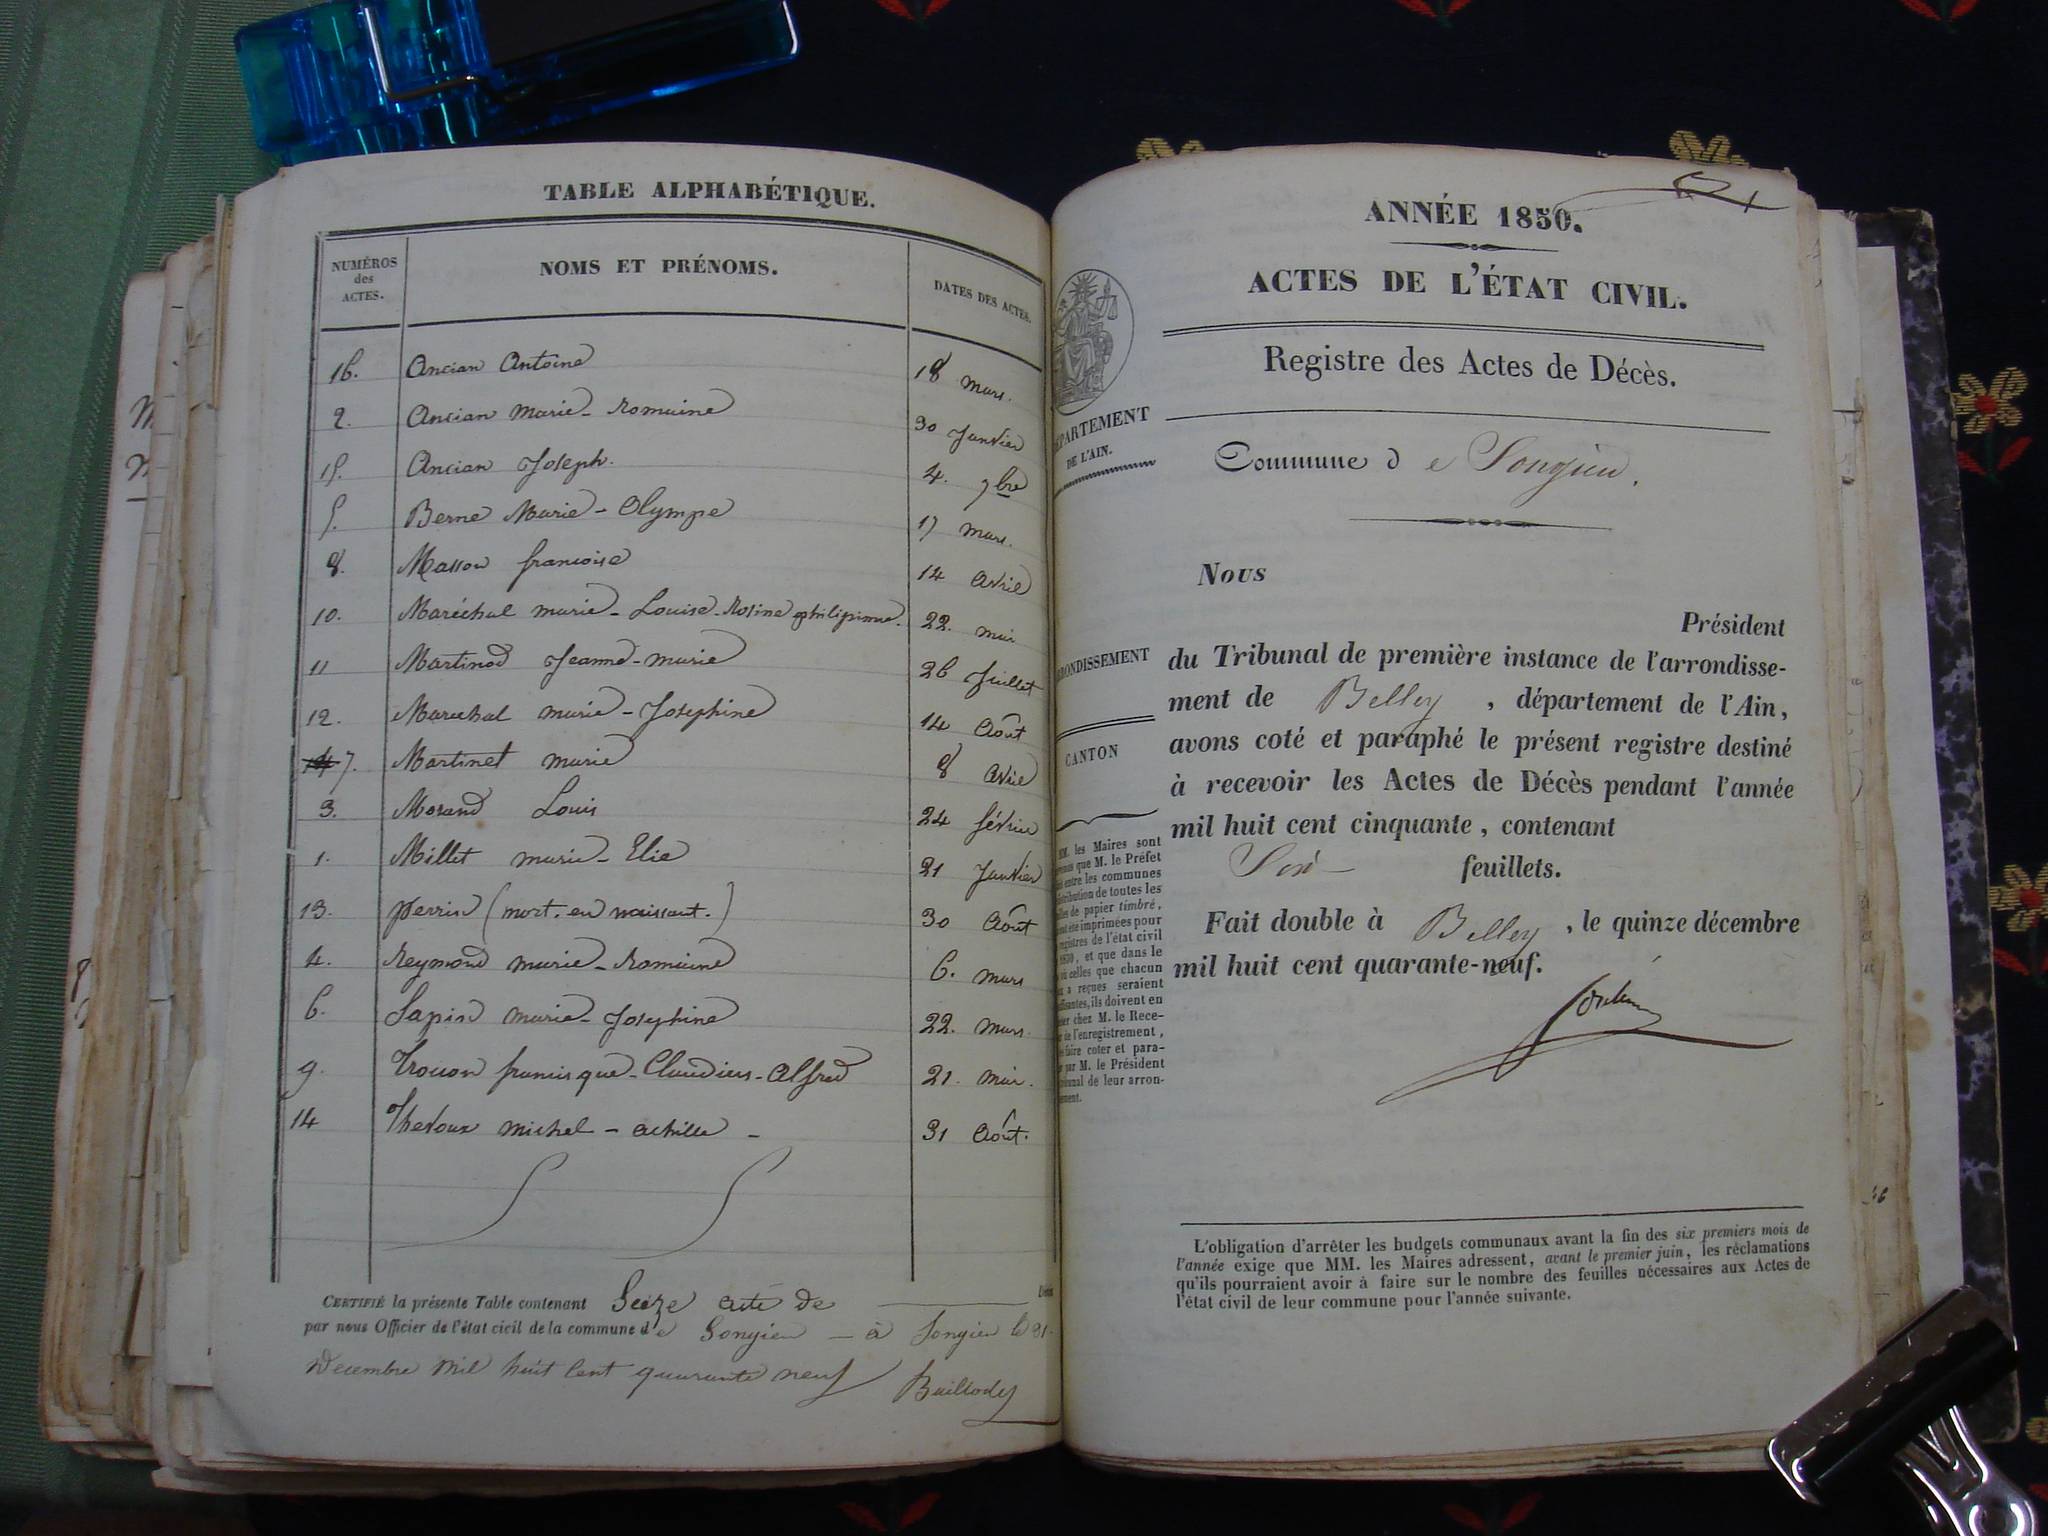 TABLE ALPHABÉTIQUE.
NUMÉROS des ACTES. NOMS ET PRÉNOMS. DATES DES ACTES.
16. Ancian Antoine 18 mars.
2. Ancian Marie-Romaine 30 Janvier
15. Ancian Joseph. 4. 9bre
5. Berne Marie-Olympe 17 mars.
8. Masson francoise 14 avril
10. Maréchal marie-Louise-Rosine philipinne. 22. mai
11 Martinod Jeanne-marie 26 Juillet
12. Marechal marie-Josephine 14 Août
7. Martinet marie 8 avril
3. Morand Louis 24 février
1. Millet marie-Elie 21 Janvier
13. perrin (mort. en naissant.) 30 Août
4. Reymond marie-Romaine 6. mars
6. Sapin marie-Josephine 22. mars
9. Trouon francisque-Claudius-Alfred 21. mai.
14 thevoux michel-achille - 31 Août.
CERTIFIÉ la présente Table contenant Seize acte de
par nous Officier de l'état civil de la commune de Songieu - à Songieu le 31.
Decembre mil huit Cent quarante neuf Baillody
ANNÉE 1850.
ACTES DE L'ÉTAT CIVIL.
Registre des Actes de Décès.
DÉPARTEMENT
DE L'AIN.
Commune de Songieu.
Nous
Président
ARRONDISSEMENT
du Tribunal de première instance de l'arrondisse-
ment de Belley, département de l'Ain,
CANTON
avons coté et paraphé le présent registre destiné
à recevoir les Actes de Décès pendant l'année
mil huit cent cinquante, contenant
Six feuillets.
Fait double à Belley, le quinze décembre
mil huit cent quarante-neuf.
MM. les Maires sont
que M. le Préfet
entre les communes
distribution de toutes les
de papier timbré,
ont été imprimées pour
registres de l'état civil
1850, et que dans le
où celles que chacun
a reçues seraient
insuffisantes, ils doivent en
chez M. le Rece-
de l'enregistrement,
faire coter et para-
par M. le Président
tribunal de leur arron-
L'obligation d'arrêter les budgets communaux avant la fin des six premiers mois de
l'année exige que MM. les Maires adressent, avant le premier juin, les réclamations
qu'ils pourraient avoir à faire sur le nombre des feuilles nécessaires aux Actes de
l'état civil de leur commune pour l'année suivante.